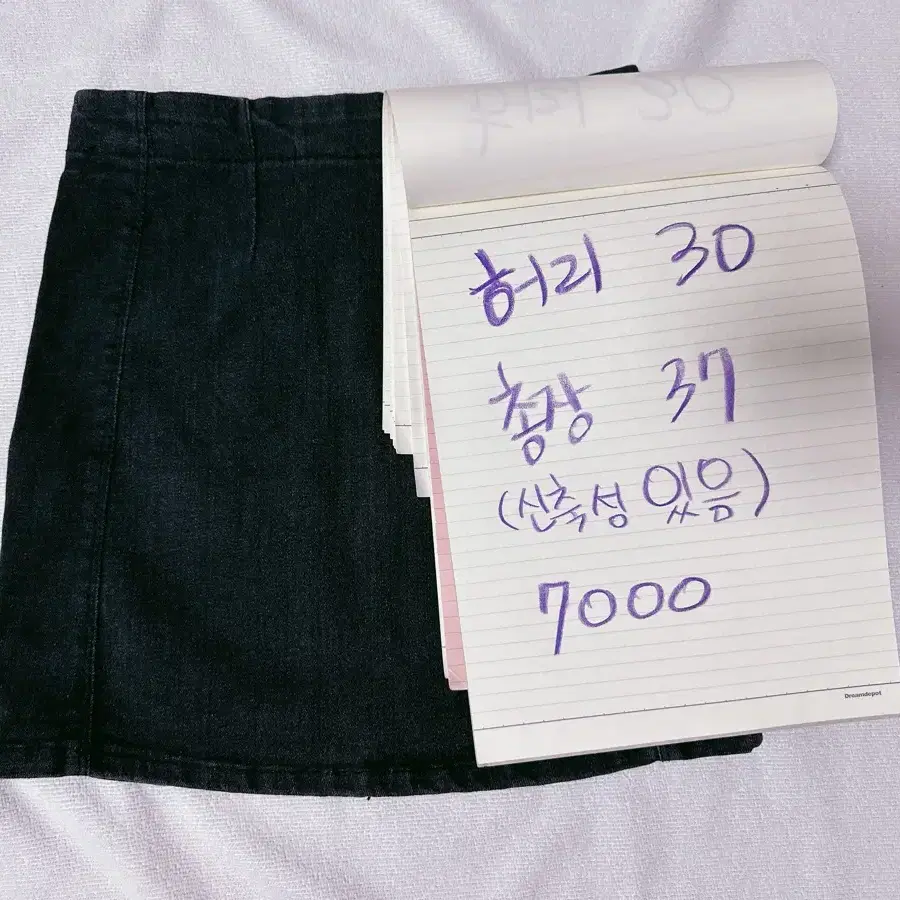 허리 30
허리 30
총장 37
(신축성 있음)
7000
Dreamdepot